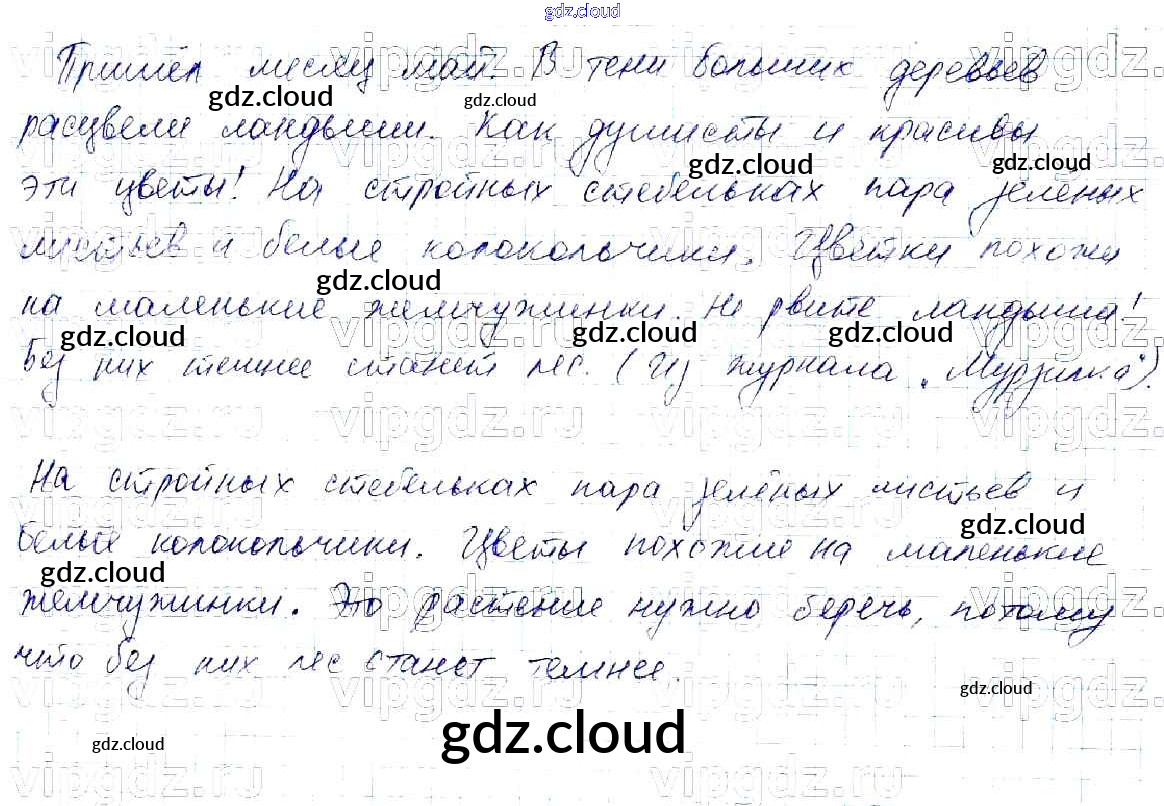 gdz.cloud
Пришёл месяц май. В тени больших деревьев
gdz.cloud gdz.cloud
расцвели ландыши. Как душисты и красивы
gdz.cloud gdz.cloud
эти цветы! На стройных стебельках пара зелёных
листьев и белые колокольчики. Цветки похожи
gdz.cloud
на маленькие жемчужинки. Не рвите ландыши!
gdz.cloud gdz.cloud gdz.cloud
Без них темнее станет лес. (Из журнала „Мурзилка“).
На стройных стебельках пара зелёных листьев и
gdz.cloud
белые колокольчики. Цветы похожие на маленькие
gdz.cloud
жемчужинки. Это растение нужно беречь, потому
что без них лес станет темнее.
gdz.cloud
gdz.cloud
gdz.cloud
vipgdz.ru